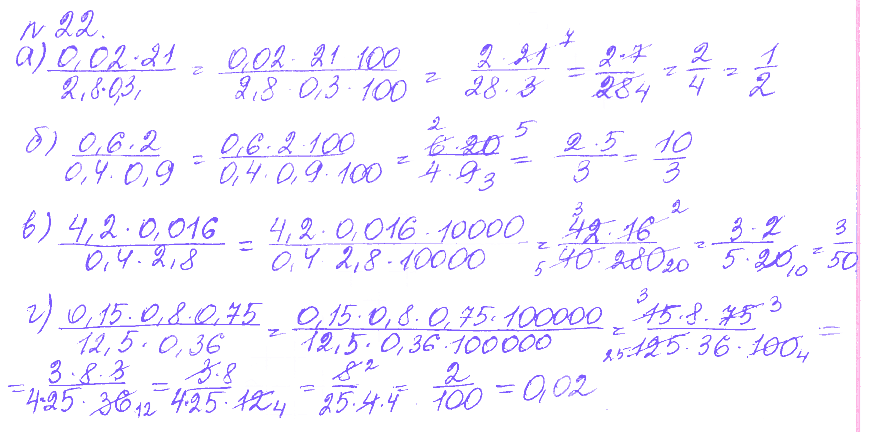 № 22.
а) (0,02 · 21)/(2,8 · 0,3) = (0,02 · 21 · 100)/(2,8 · 0,3 · 100) = (2 · 21 7)/(28 · 3) = (2 · 7)/(28 4) = 2/4 = 1/2
б) (0,6 · 2)/(0,4 · 0,9) = (0,6 · 2 · 100)/(0,4 · 0,9 · 100) = (2 6 · 20 5)/(4 · 9 3) = (2 · 5)/3 = 10/3
в) (4,2 · 0,016)/(0,4 · 2,8) = (4,2 · 0,016 · 10000)/(0,4 · 2,8 · 10000) = (3 42 · 16 2)/(5 40 · 280 20) = (3 · 2)/(5 · 20 10) = 3/50
г) (0,15 · 0,8 · 0,75)/(12,5 · 0,36) = (0,15 · 0,8 · 0,75 · 100000)/(12,5 · 0,36 · 100000) = (3 15 · 8 · 75 3)/(25 125 · 36 · 100 4) =
= (3 · 8 · 3)/(4 · 25 · 36 12) = (3 · 8)/(4 · 25 · 12 4) = (8 2)/(25 · 4 · 4) = 2/100 = 0,02